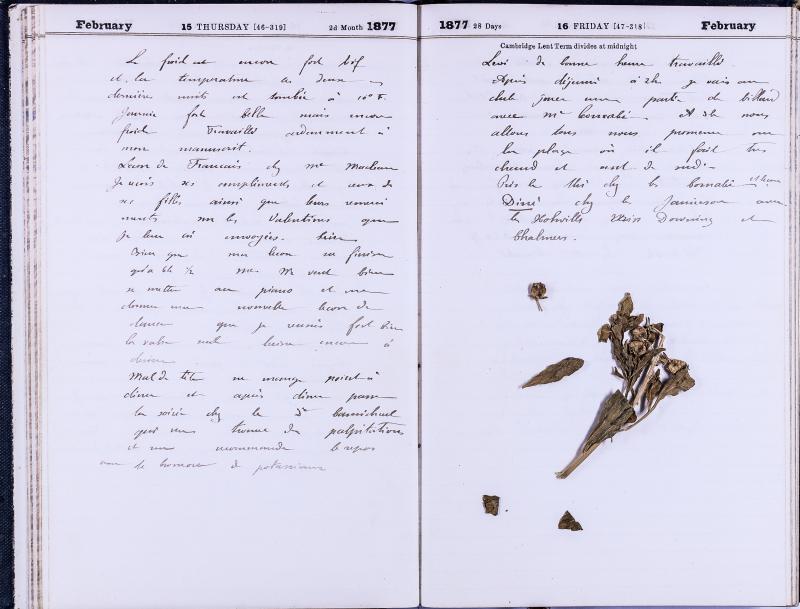 February 15 THURSDAY [46-319] 2d Month 1877
Le froid est encore fort vif
et la température la deux
dernières nuits est tombée à 10° F.
Journée fort belle mais encore
froid Travaillé ardemment à
mon manuscrit.
Lecon de Francais chez Mme
Je reçois ses compliments et ceux de
ses filles ainsi que leurs remerci
ments sur les Valentines que
je leur ai envoyées.
Bien que ma lecon se finisse
qu'à 6h ½ Me M veut bien
se mettre au piano et me
donner une nouvelle lecon de
danse que je réussis fort bien
la valse seule laisse encore à
désirer
Mal de tête ne mange point à
diner et après diner passe
la soirée chez le Dr Carmichael
qui me trouve des palpitations
et me recommande le repos
avec le bromure de potassium
1877 28 Days 16 FRIDAY [47-318] February
Cambridge Lent Term divides at midnight
Levé de bonne heure travaillé
Après déjeuné à 2h je vais au
club jouer une partie de billard
avec Mr A 3h nous
allons tous nous promener sur
la plage où il fait très
chaud et vent de midi
Pris le thé chez les
Diné chez le Jamieson avec
les Miss Downing et
Chalmers.